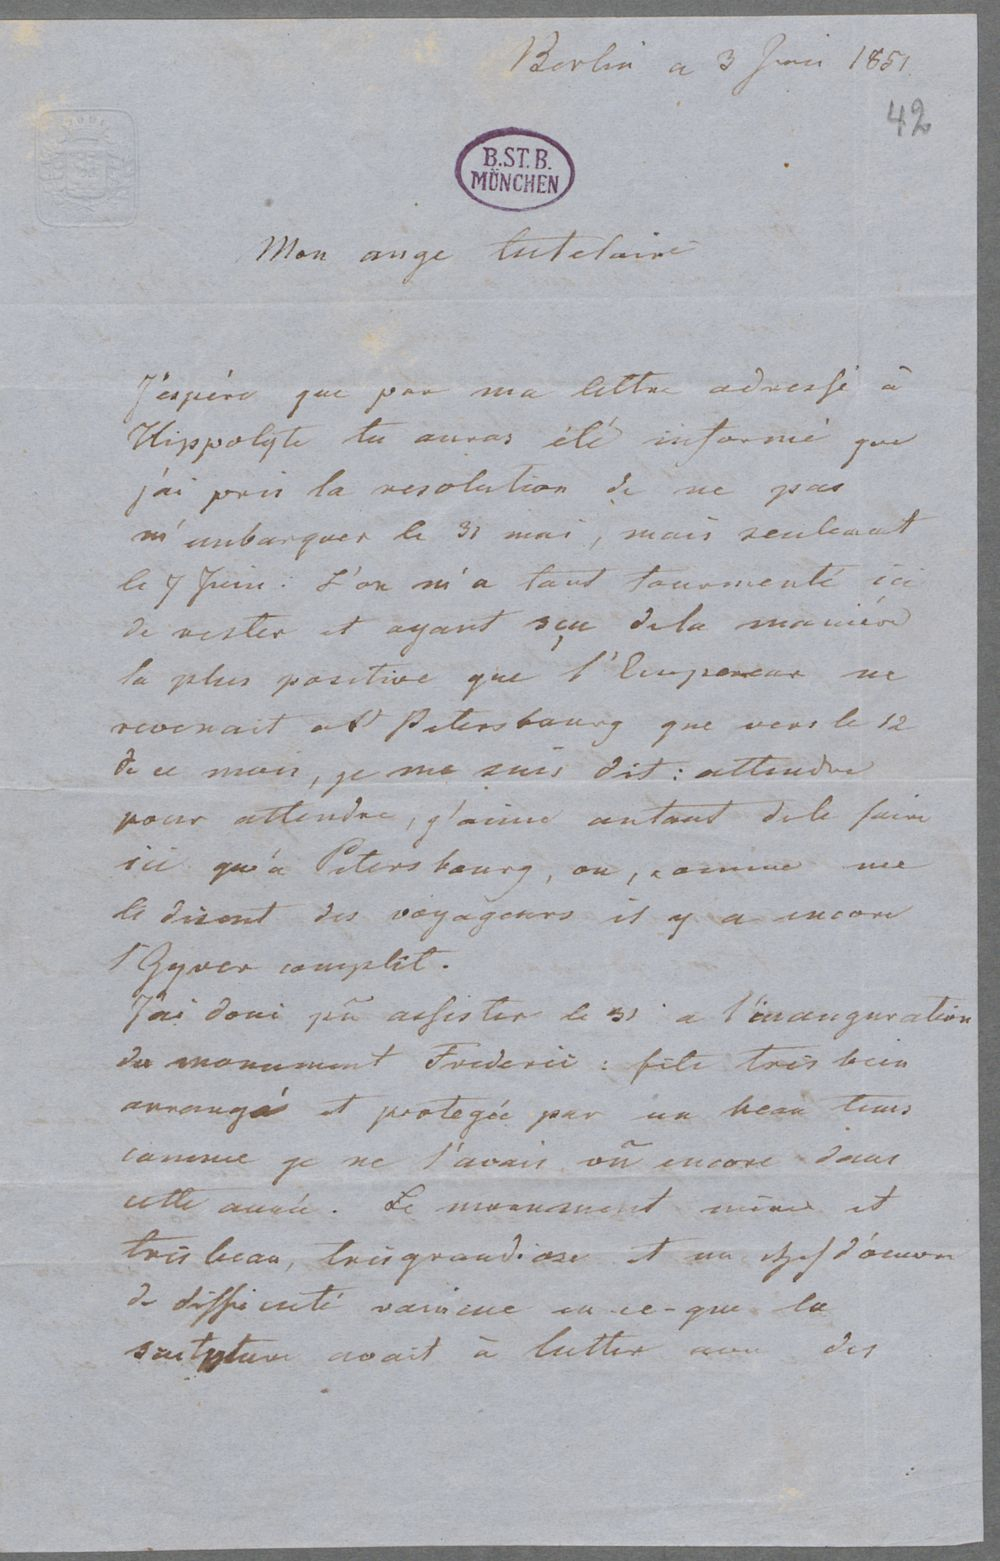 Berlin a 3 Juin 1851.
42
B.ST.B.
MÜNCHEN
Mon ange tutelaire
J'espére que par ma lettre adressé à
Hippolyte tu auras été informé que
j'ai pris la resolution de ne pas
m'embarquer le 31 mai, mais seulement
le 7 Juin. L'on m'a tant tourmenté ici
de rester et ayant sçu dela maniére
la plus positive que l'Empereur ne
revenait a St Petersbourg que vers le 12
de ce mois, je me suis dit: attendre
pour attendre, j'aime autant dele faire
ici qu'a Petersbourg, ou, comme me
le disent des voyageurs il y a encore
l'Hyver complêt.
J'ai donc pû assister le 31 a l'inauguration
du monument Frederic: fête très bien
arrangé et protegée par un beau tems
comme je ne l'avais vû encore dans
cette année. Le monument même et
très beau, très grandiose et un chef d'oeuvre
de difficulté vaincue en ce-que la
sculpture avait à lutter avec des